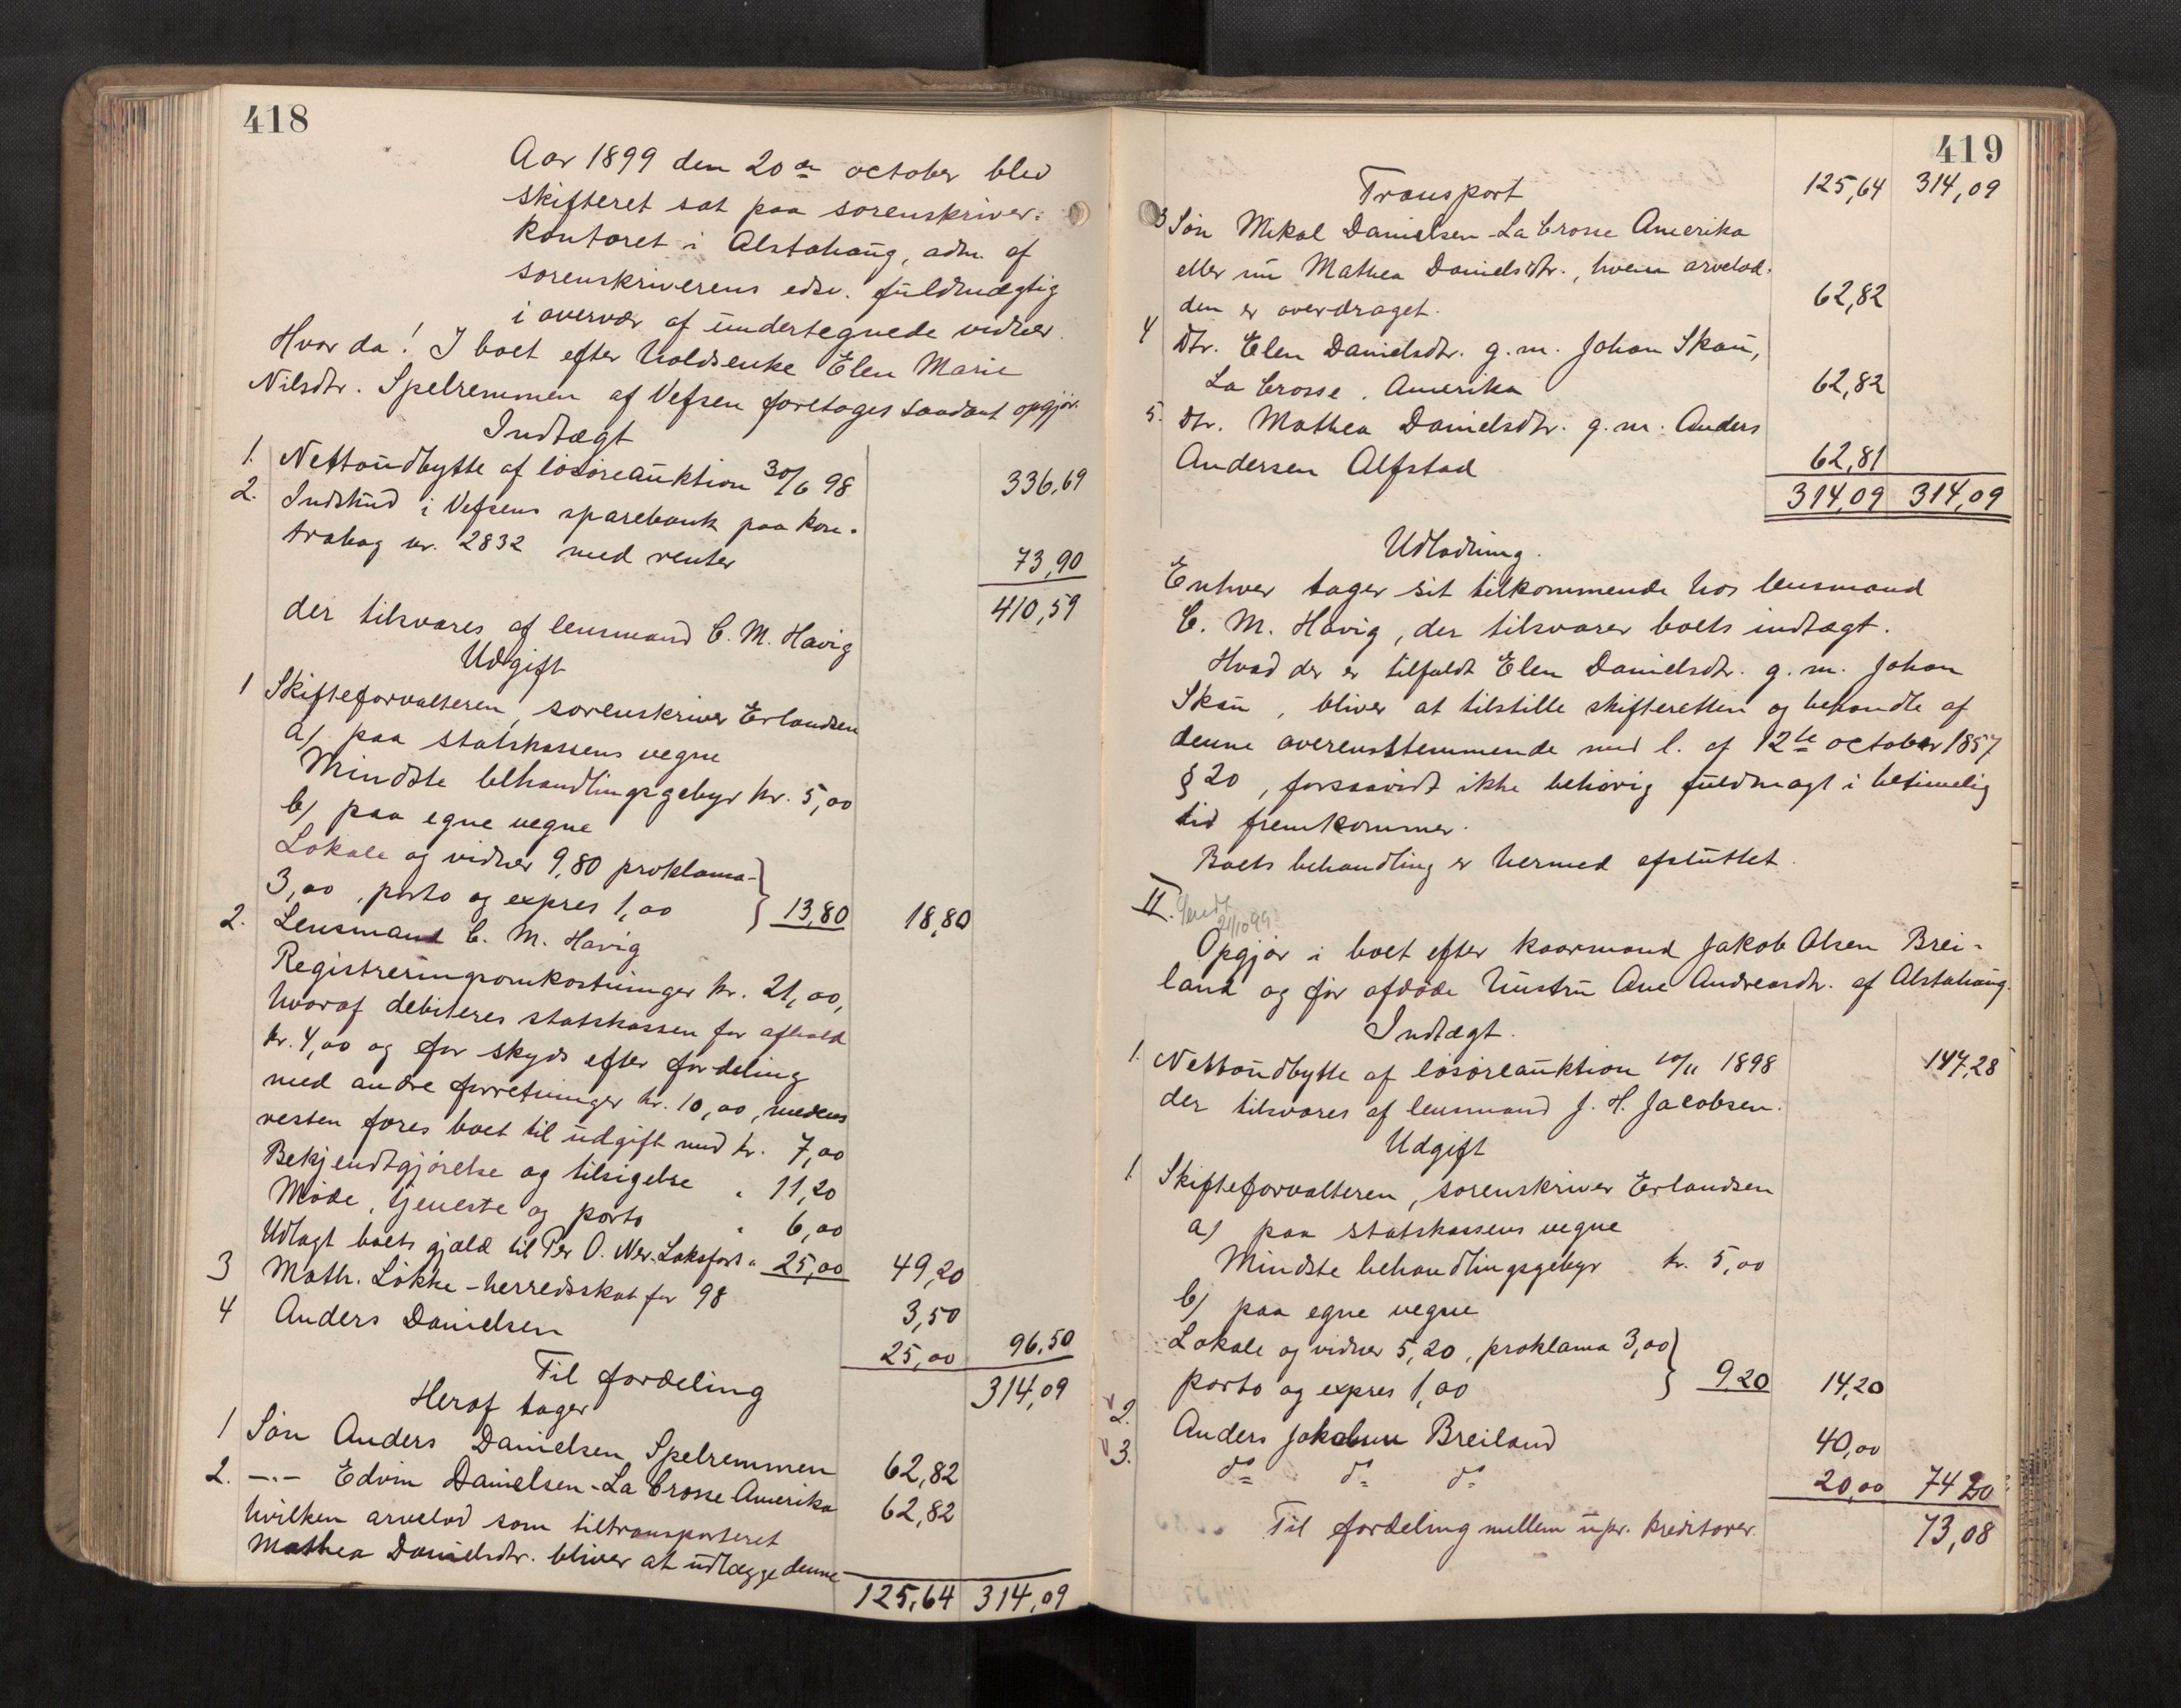 418
Aar 1899 den 20de october blev
skifteret sat paa sorenskriver=
kontoret i Alstahaug, adm. af
sorenskriverens edsv. fuldmægtig
i overvær af undertegnede vidner.
Hvor da! I boet efter holdsenke Elen Marie
Nilsdtr. Spelremmen af Vefsen foretoges saadant opgjør.
Indtægt
1. Nettoudbytte af løsøreauktion 30/6 98 336,69
2. Indskud i Vefsens sparebank paa kon-
trabog nr. 2832 med renter 73,90
410,59
der tilsvares af lensmand C. M. Havig
Udgift
1 Skifteforvalteren, sorenskriver Erlandsen
a) paa statskassens vegne
Mindste behandlingsgebyr kr. 5,00
b) paa egne vegne
Lokale og vidner 9,80 proklama-
3,00, porto og expres 1,00 } 13,80 18,80
2. Lensmand C. M. Havig
Registreringsomkostninger kr. 21,00,
hvoraf debiteres statskassen for afhold
kr. 4,00 og for skyds efter fordeling
med andre forretninger kr. 10,00, medens
resten føres boet til udgift med kr. 7,00
Bekjendtgjørelse og tilsigelse " 11,20
Møde, tjeneste og porto " 6,00
Udlagt boets gjæld til Per O. Ner-Laksfors " 25,00 49,20
3 Math. Løkke - herredsskat for 98 3,50
4 Anders Danielsen 25,00 96,50
Til fordeling 314,09
Heraf tager
1 Søn Anders Danielsen Spelremmen 62,82
2. -"- Edvin Danielsen - La Crosse Amerika 62,82
hvilken arvelod som tiltransporteret
Mathea Danielsdtr. bliver at udlægge denne
125,64 314,09
419
Transport 125,64 314,09
3 Søn Mikal Danielsen - La Crosse Amerika
eller nu Mathea Danielsdtr., hvem arvelod-
den er overdraget. 62,82
4 Dtr. Elen Danielsdtr. g. m. Johan Skau,
La Crosse, Amerika 62,82
5. Dtr. Mathea Danielsdtr. g. m. Anders
Andersen Alfstad 62,81
314,09 314,09
Udlodning.
Enhver tager sit tilkommende hos lensmand
C. M. Havig, der tilsvarer boets indtægt.
Hvad der er tilfaldt Elen Danielsdtr. g. m. Johan
Skau, bliver at tilstille skifteretten og behandle af
denne overensstemmende med l. af 12te october 1857
§ 20, forsaavidt ikke behørig fuldmagt i betimelig
tid fremkommer.
Boets behandling er hermed afsluttet.
II. Sendt
21/10 99
Opgjør i boet efter kaarmand Jakob Olsen Brei-
land og før afdøde hustru Ane Andreasdtr. af Alstahaug.
Indtægt.
1. Nettoudbytte af løsøreauktion 10/11 1898 147,28
der tilsvares af lensmand J. H. Jacobsen.
Udgift
1 Skifteforvalteren, sorenskriver Erlandsen
a) paa statskassens vegne
Mindste behandlingsgebyr kr. 5,00
b) paa egne vegne
Lokale og vidner 5,20, proklama 3,00
porto og expres 1,00 } 9,20 14,20
2. Anders Jakobsen Breiland 40,00
3. do do do 20,00 74 20
Til fordeling mellem upr. kreditorer. 73,08